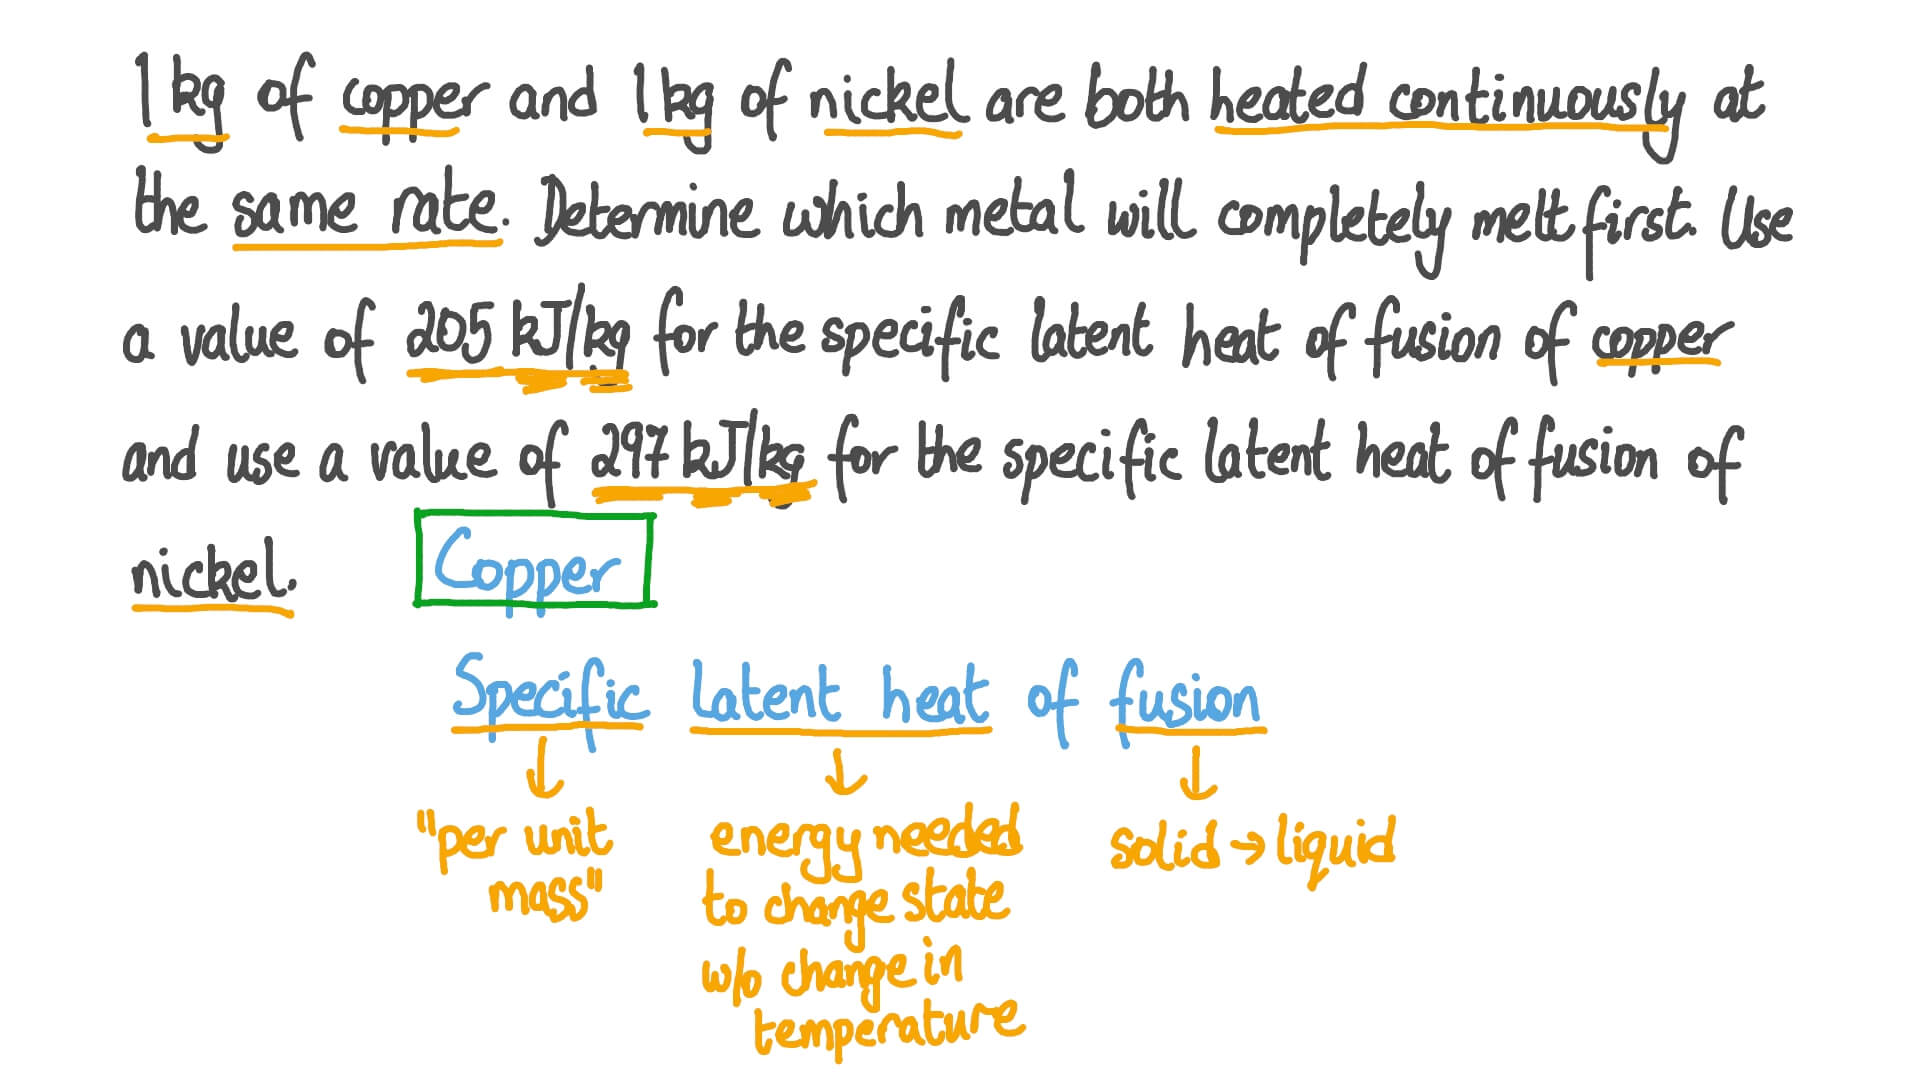 1 kg of copper and 1 kg of nickel are both heated continuously at
the same rate. Determine which metal will completely melt first. Use
a value of 205 kJ/kg for the specific latent heat of fusion of copper
and use a value of 297 kJ/kg for the specific latent heat of fusion of
nickel. Copper
Specific latent heat of fusion
"per unit mass"
energy needed
to change state
w/o change in
temperature
solid → liquid